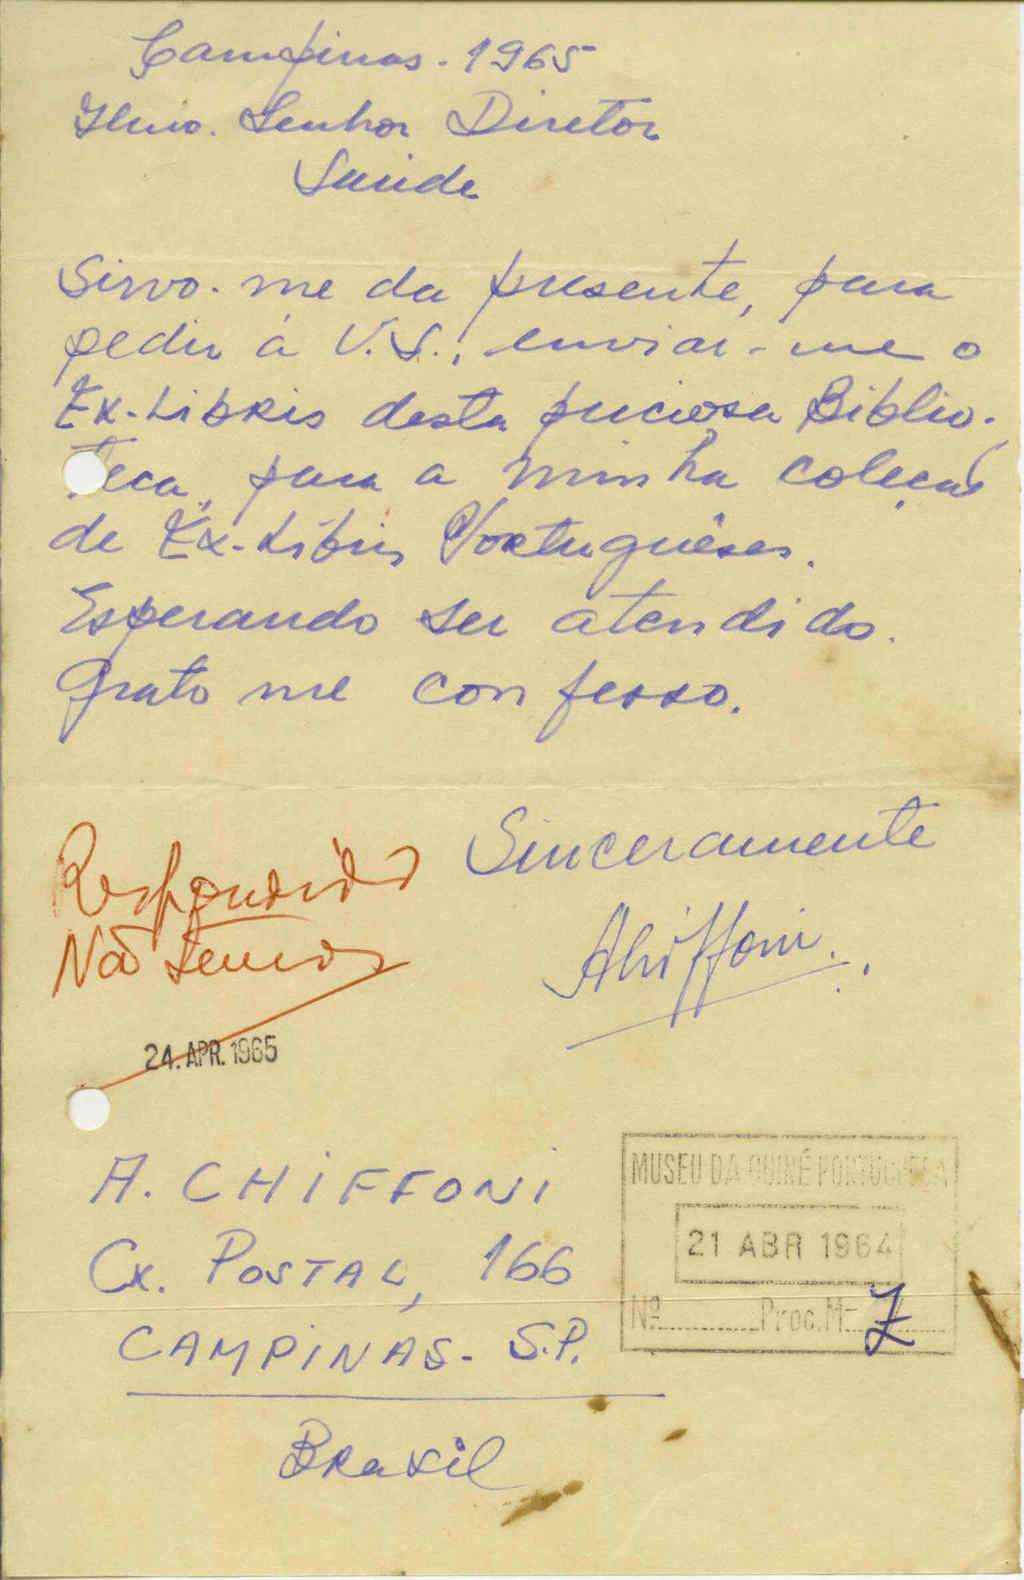 Campinas. 1965
Ilmo. Senhor Diretor
Saúde
Sirvo-me da presente, para
pedir à V.S., enviar-me o
Ex-Libris desta preciosa Biblio-
teca, para a minha coleção
de Ex-Libris Portuguêses.
Esperando ser atendido.
Grato me confesso.
Sinceramente
AChiffoni.
Respondido
Não temos
24. APR. 1965
A. CHIFFONI
Cx. POSTAL, 166
CAMPINAS - S.P.
BRasil
MUSEU DA GUINÉ PORTUGUESA
21 ABR 1964
Nº ............ Proc. M- Z